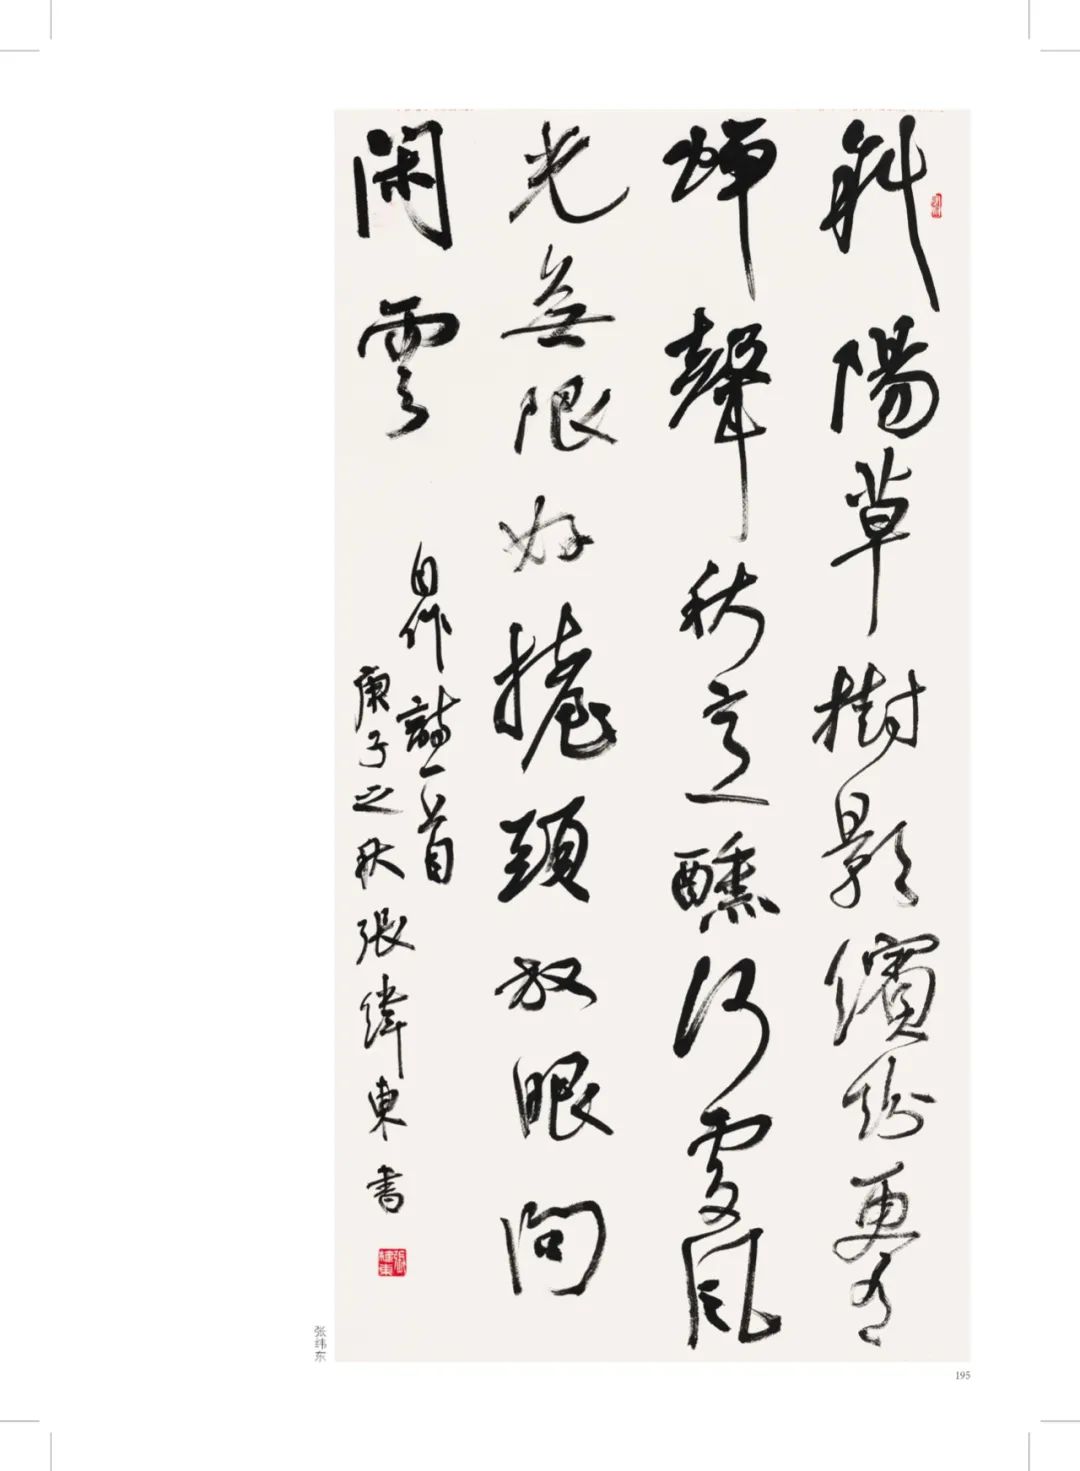 斜陽草樹影繽紛更有
蟬聲秋意醺何處風
光無限好擡頭放眼問
閑雲
自作詩一首
庚子之秋張緯東書
張緯東
张纬东
195